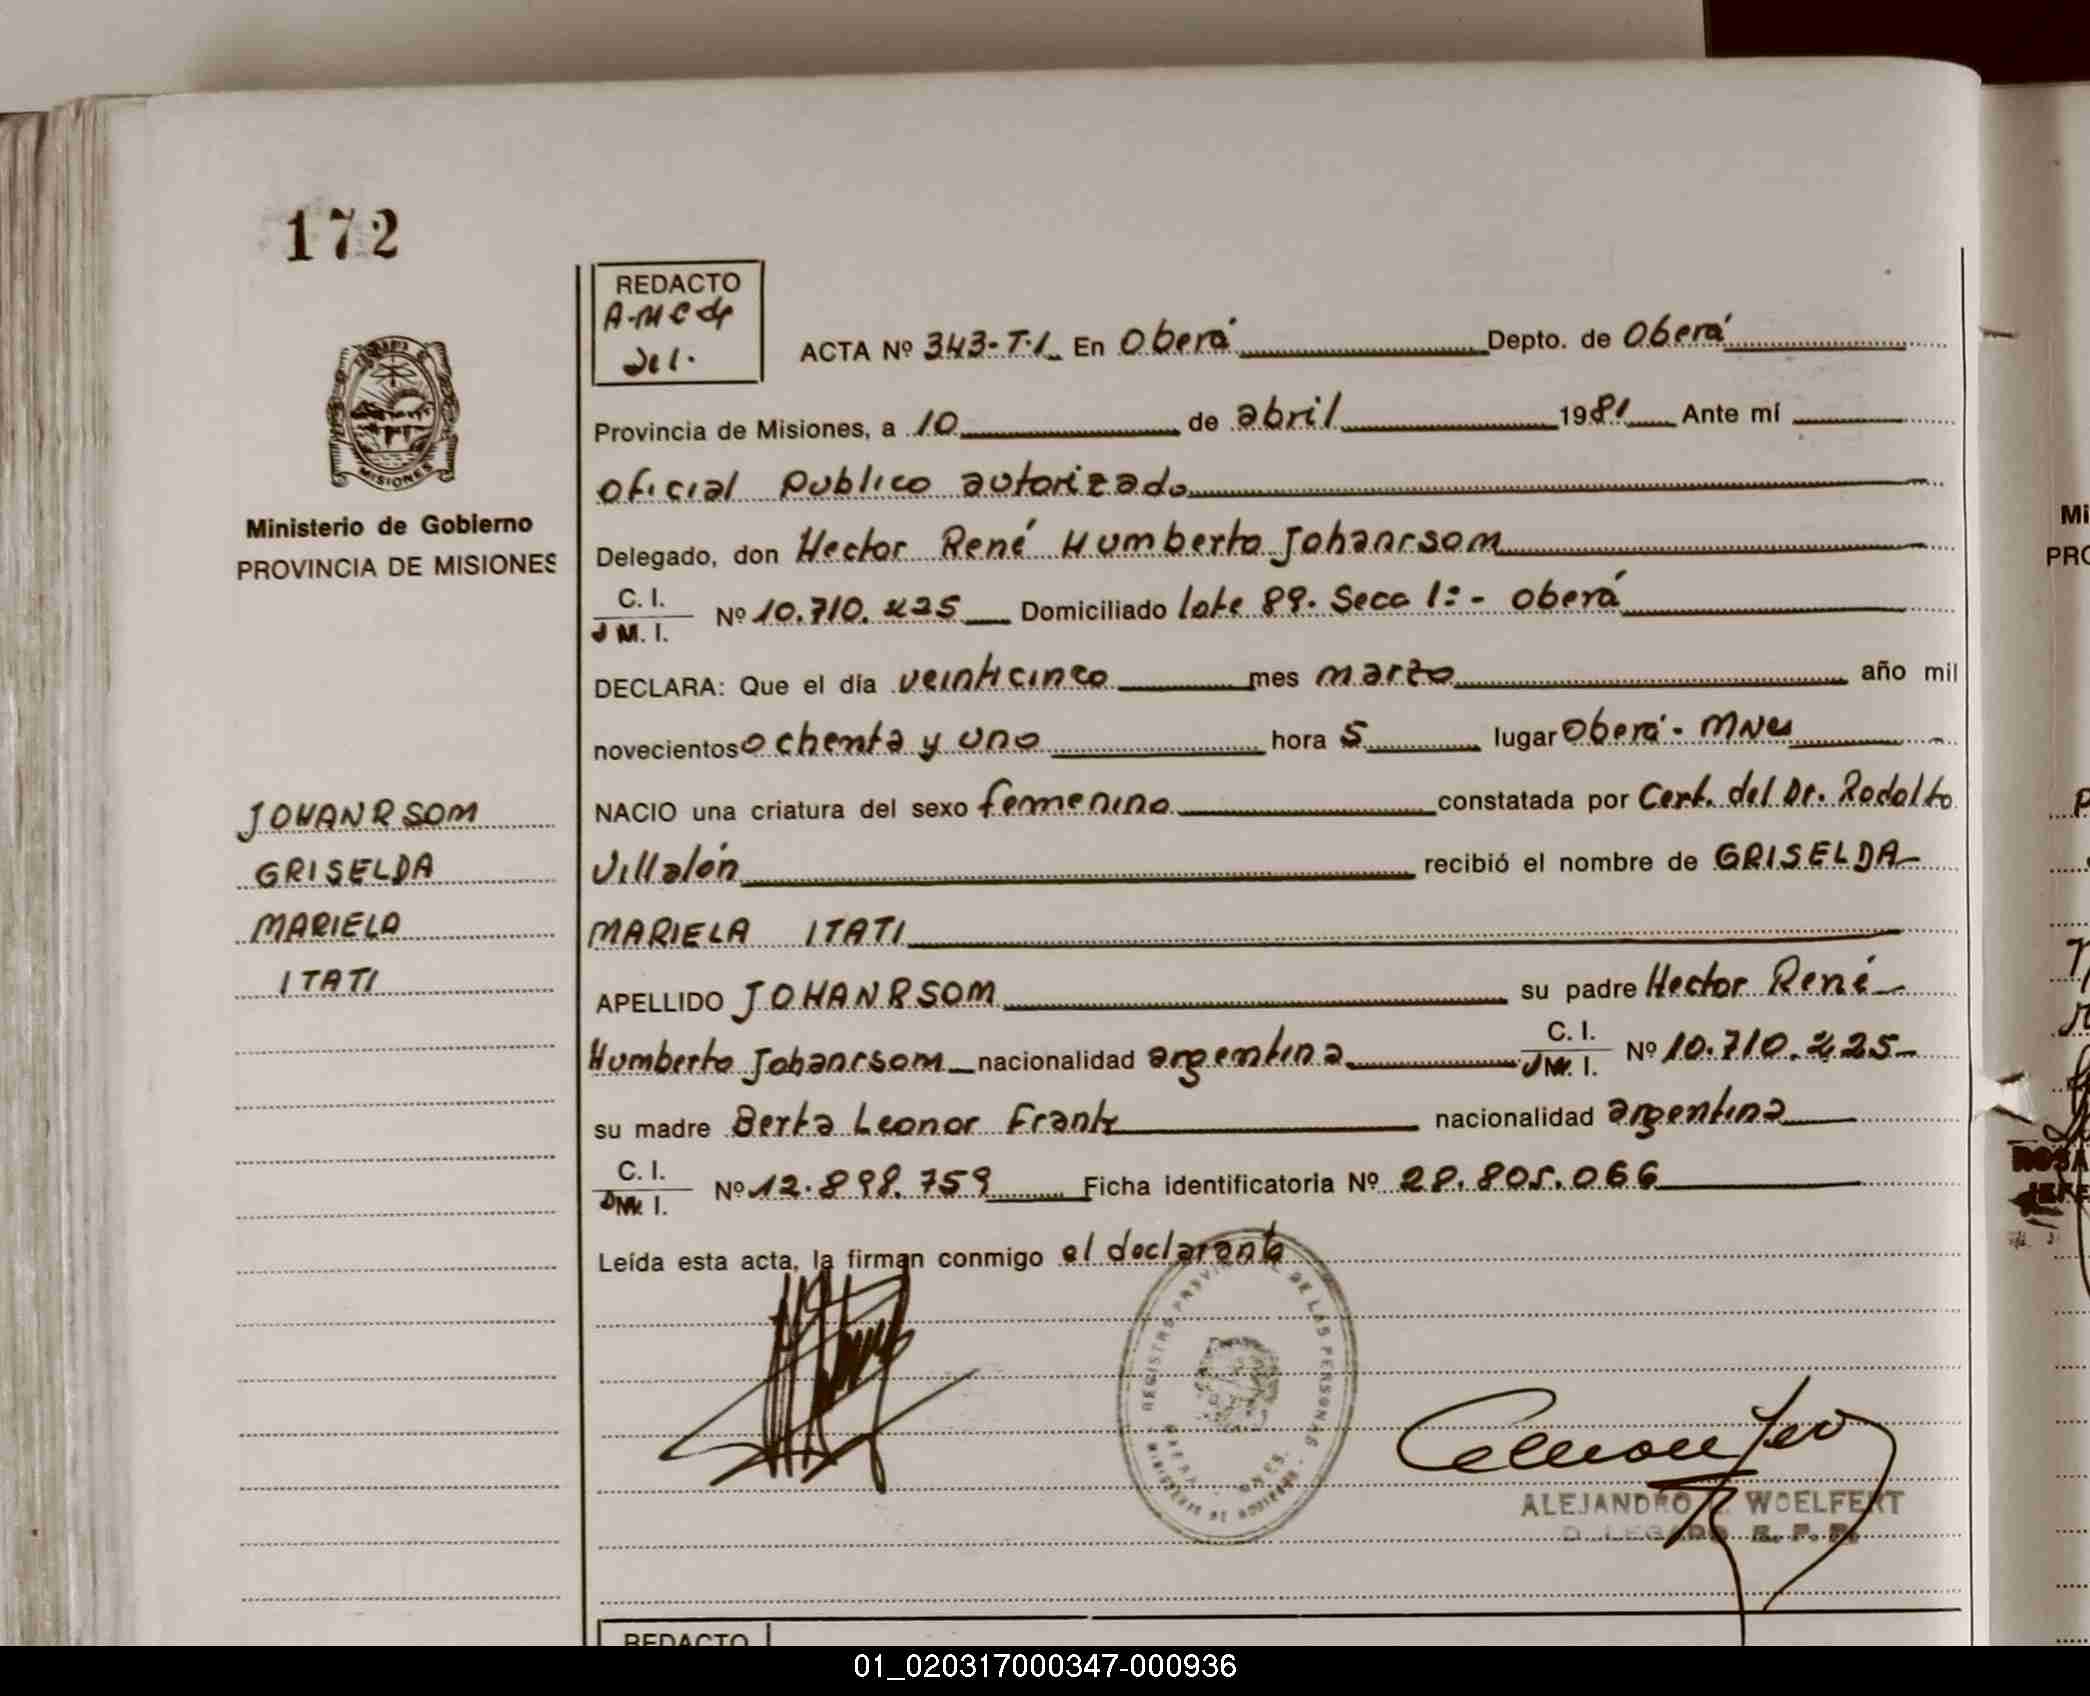 172
REDACTO
ACTA Nº 343-T.1. En Oberá Depto. de Oberá
Provincia de Misiones, a 10 de abril 1981 Ante mí
Oficial Publico autorizado
MISIONES
Ministerio de Gobierno
PROVINCIA DE MISIONES
Delegado, don Hector René Humberto Johanrsom
C. I.
M. I.
Nº 10.710.425 Domiciliado lote 89. Secc 1: - Oberá
DECLARA: Que el día veinticinco mes marzo año mil
novecientos ochenta y uno hora 5 lugar Oberá - MNes
NACIO una criatura del sexo femenino constatada por Cert. del Dr. Rodolfo
Villalón recibió el nombre de GRISELDA
MARIELA ITATI
JOHANRSOM
GRISELDA
MARIELA
ITATI
APELLIDO JOHANRSOM su padre Hector René
Humberto Johanrsom nacionalidad argentina C. I. M. I. Nº 10.710.425
su madre Berta Leonor Frank nacionalidad argentina
C. I.
M. I.
Nº 12.898.759 Ficha identificatoria Nº 28.805.066
Leída esta acta, la firman conmigo el declarante
REGISTRO PROVINCIAL DE LAS PERSONAS
ALEJANDRO WOELFERT
REDACTO
01_020317000347-000936